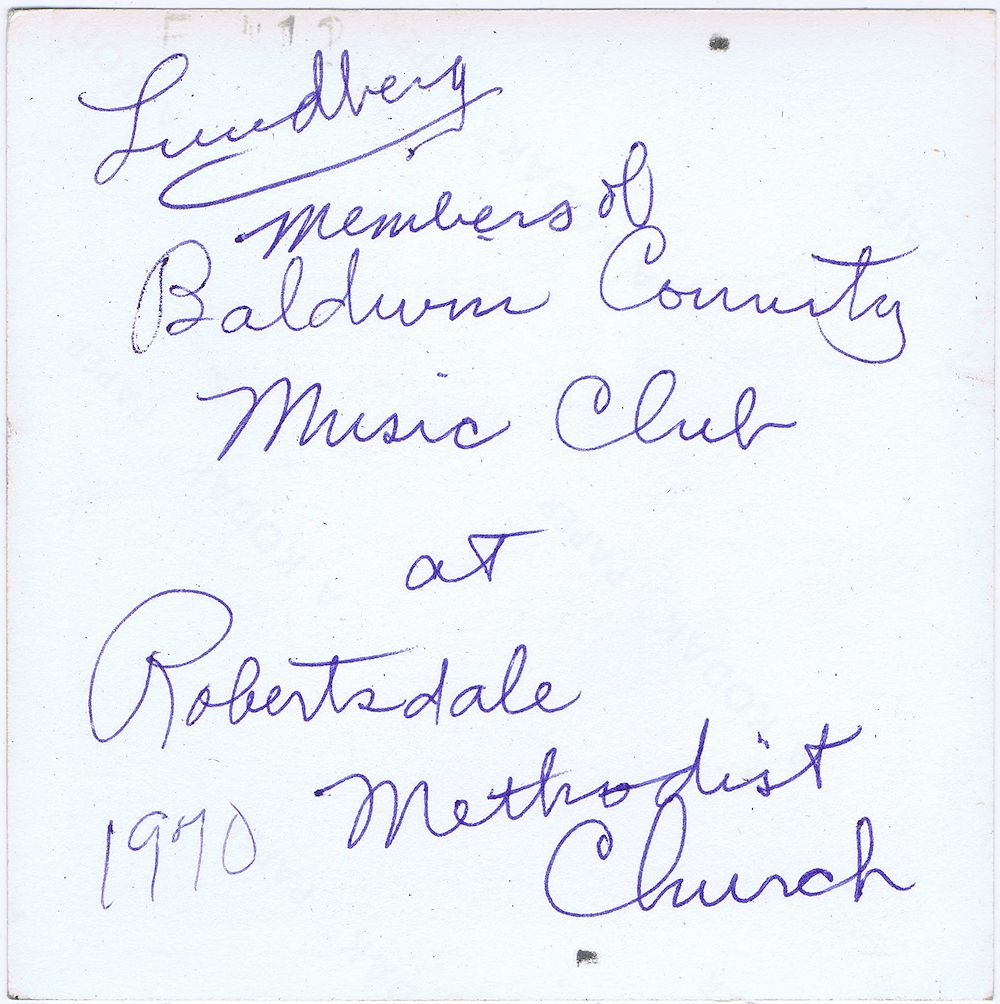 Lundberg
Members of
Baldwin County
Music Club
at
Robertsdale
Methodist
1970
Church